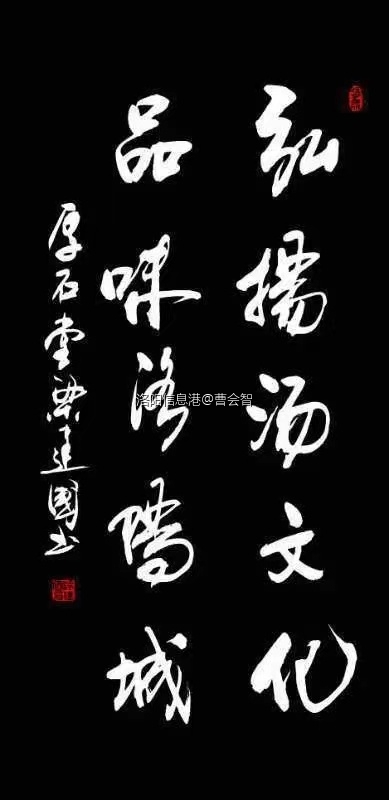 弘揚汤文化
品味洛陽城
厚石堂梁建國书
洛阳信息港@曹会智